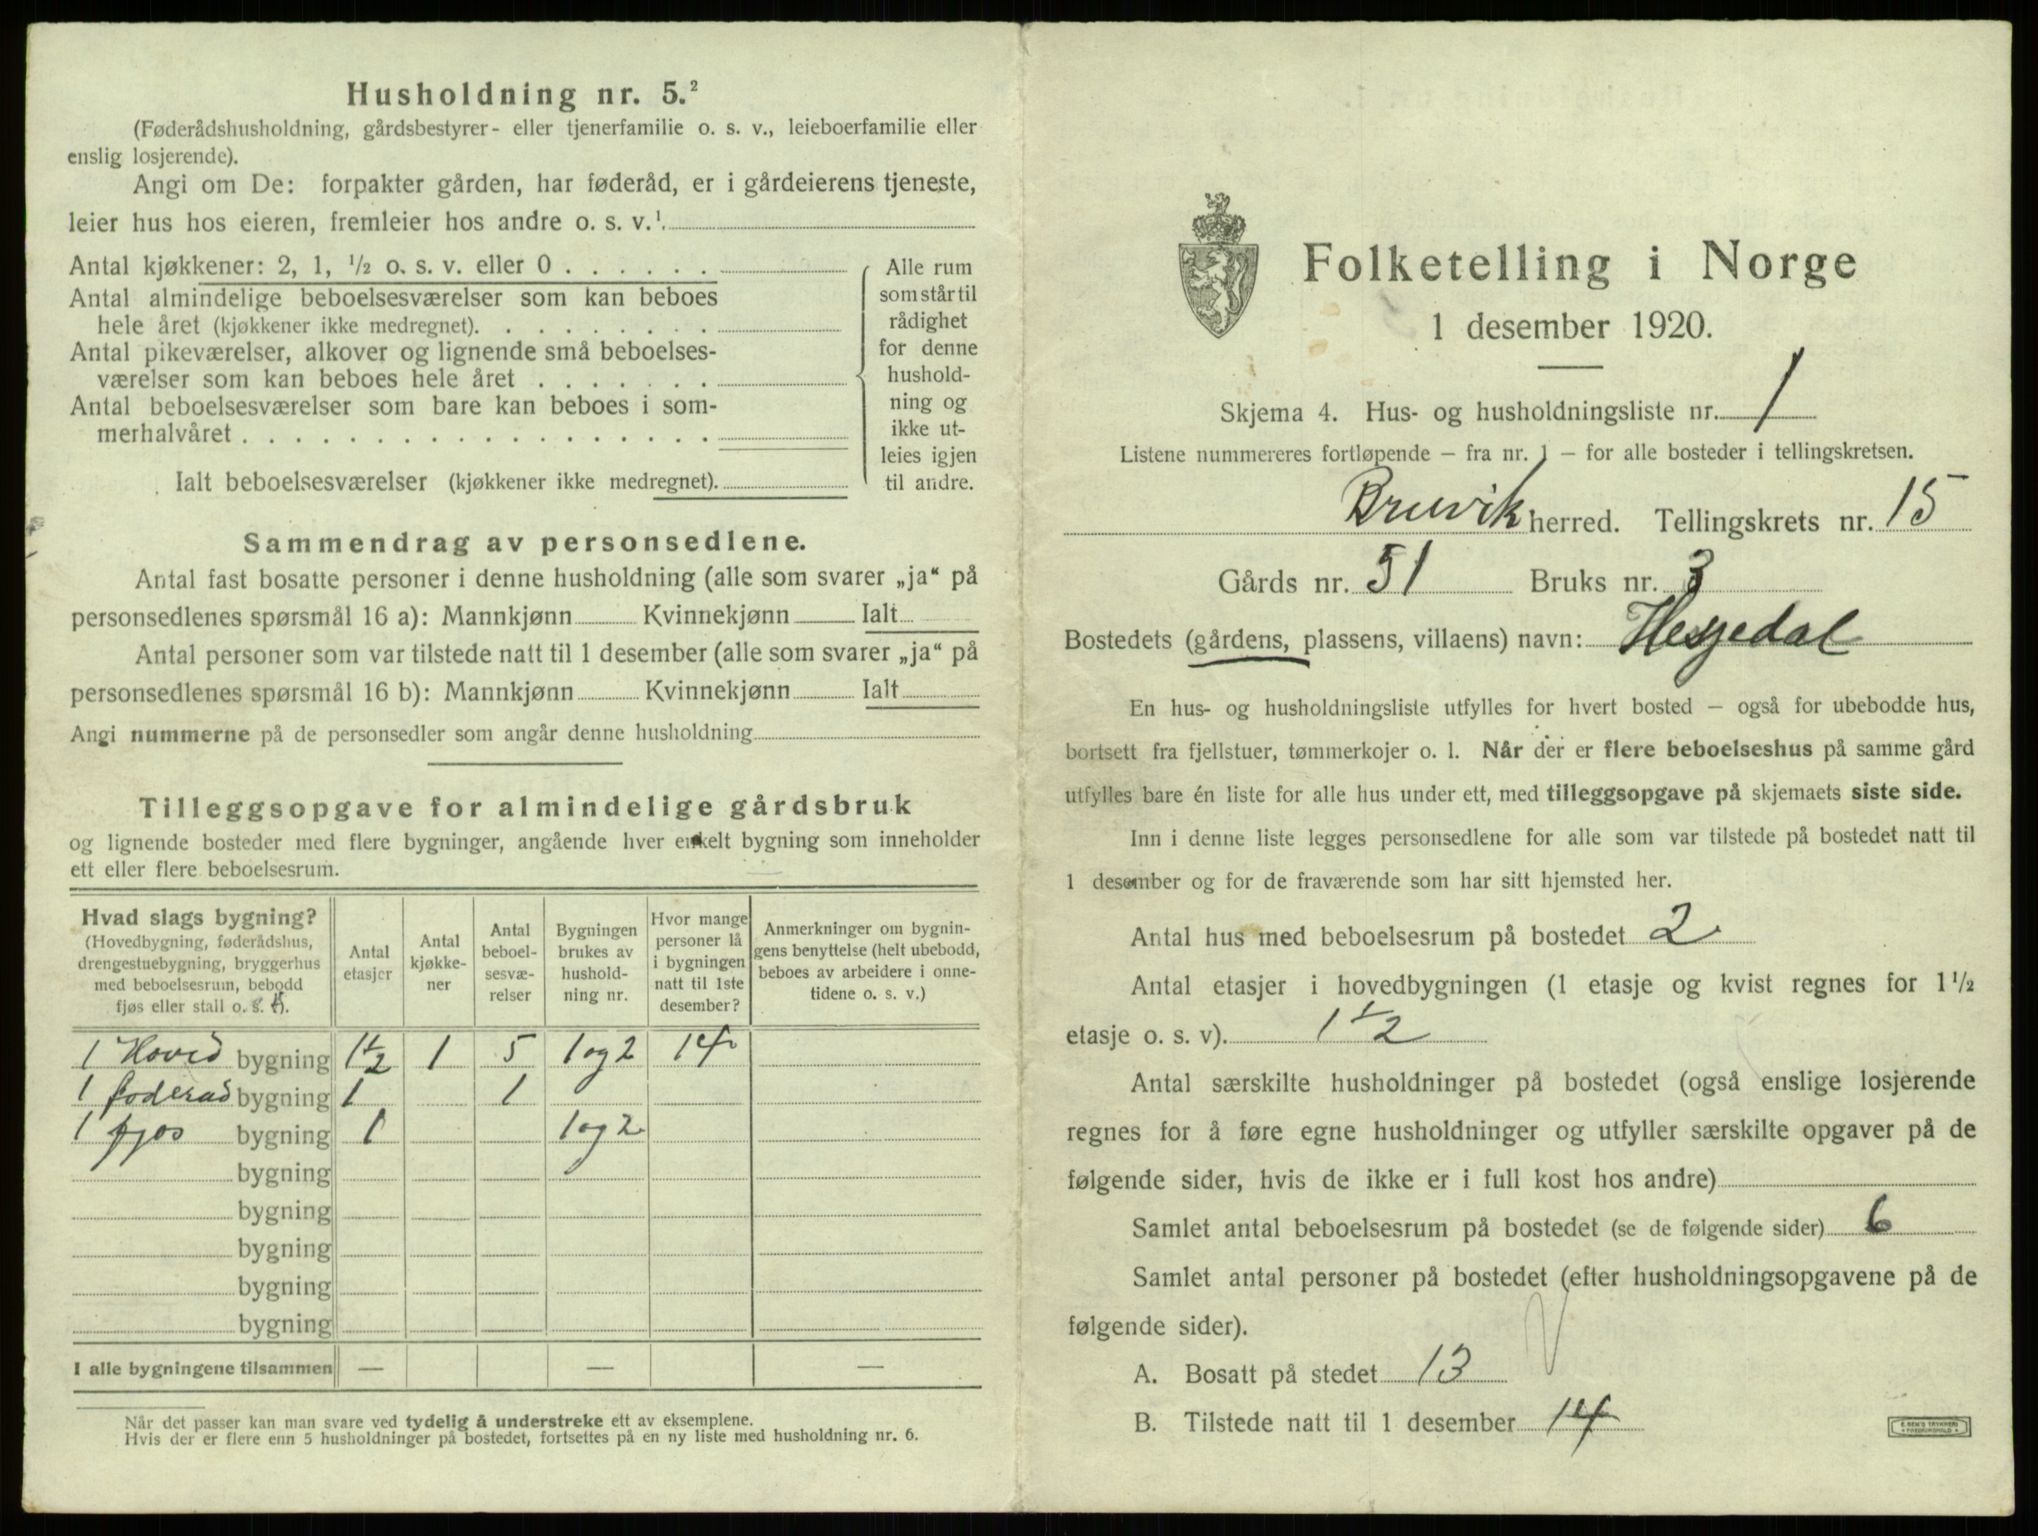 Husholdning nr. 5.²
(Føderådshusholdning, gårdsbestyrer- eller tjenerfamilie o. s. v., leieboerfamilie eller
enslig losjerende).
Angi om De: forpakter gården, har føderåd, er i gårdeierens tjeneste,
leier hus hos eieren, fremleier hos andre o. s. v.¹.
Antal kjøkkener: 2, 1, ½ o. s. v. eller 0 . . . . . .
Antal almindelige beboelsesværelser som kan beboes
hele året (kjøkkener ikke medregnet). . . . . . . . .
Antal pikeværelser, alkover og lignende små beboelses-
værelser som kan beboes hele året . . . . . . .
Antal beboelsesværelser som bare kan beboes i som-
merhalvåret . . . . . . . . . . . . . . . . . .
Ialt beboelsesværelser (kjøkkener ikke medregnet).
Alle rum
som står til
rådighet
for denne
hushold-
ning og
ikke ut-
leies igjen
til andre.
Sammendrag av personsedlene.
Antal fast bosatte personer i denne husholdning (alle som svarer „ja“ på
personsedlenes spørsmål 16 a): Mannkjønn Kvinnekjønn Ialt
Antal personer som var tilstede natt til 1 desember (alle som svarer „ja“ på
personsedlenes spørsmål 16 b): Mannkjønn Kvinnekjønn Ialt
Angi nummerne på de personsedler som angår denne husholdning
Tilleggsopgave for almindelige gårdsbruk
og lignende bosteder med flere bygninger, angående hver enkelt bygning som inneholder
ett eller flere beboelsesrum.
Hvad slags bygning?
(Hovedbygning, føderådshus,
drengestuebygning, bryggerhus
med beboelsesrum, bebodd
fjøs eller stall o. s. v.).
Antal
etasjer
Antal
kjøkke-
ner
Antal
beboel-
sesvæ-
relser
Bygningen
brukes av
hushold-
ning nr.
Hvor mange
personer lå
i bygningen
natt til 1ste
desember?
Anmerkninger om bygnin-
gens benyttelse (helt ubebodd,
beboes av arbeidere i onne-
tidene o. s. v.)
1 Hoved bygning 1½ 1 5 1 og 2 14
1 føderad bygning 1 1
1 fjos bygning 1 1 og 2
bygning
bygning
bygning
bygning
bygning
I alle bygningene tilsammen — — —
Når det passer kan man svare ved tydelig å understreke ett av eksemplene.
Hvis der er flere enn 5 husholdninger på bostedet, fortsettes på en ny liste med husholdning nr. 6.
Folketelling i Norge
1 desember 1920.
Skjema 4. Hus- og husholdningsliste nr. 1
Listene nummereres fortløpende – fra nr. 1 – for alle bosteder i tellingskretsen.
Bruvik herred. Tellingskrets nr. 15
Gårds nr. 51 Bruks nr. 3
Bostedets (gårdens, plassens, villaens) navn: Hesjedal
En hus- og husholdningsliste utfylles for hvert bosted – også for ubebodde hus,
bortsett fra fjellstuer, tømmerkojer o. l. Når der er flere beboelseshus på samme gård
utfylles bare én liste for alle hus under ett, med tilleggsopgave på skjemaets siste side.
Inn i denne liste legges personsedlene for alle som var tilstede på bostedet natt til
1 desember og for de fraværende som har sitt hjemsted her.
Antal hus med beboelsesrum på bostedet 2
Antal etasjer i hovedbygningen (1 etasje og kvist regnes for 1½
etasje o. s. v). 1½
Antal særskilte husholdninger på bostedet (også enslige losjerende
regnes for å føre egne husholdninger og utfyller særskilte opgaver på de
følgende sider, hvis de ikke er i full kost hos andre)
Samlet antal beboelsesrum på bostedet (se de følgende sider) 6
Samlet antal personer på bostedet (efter husholdningsopgavene på de
følgende sider).
A. Bosatt på stedet 13
B. Tilstede natt til 1 desember 14